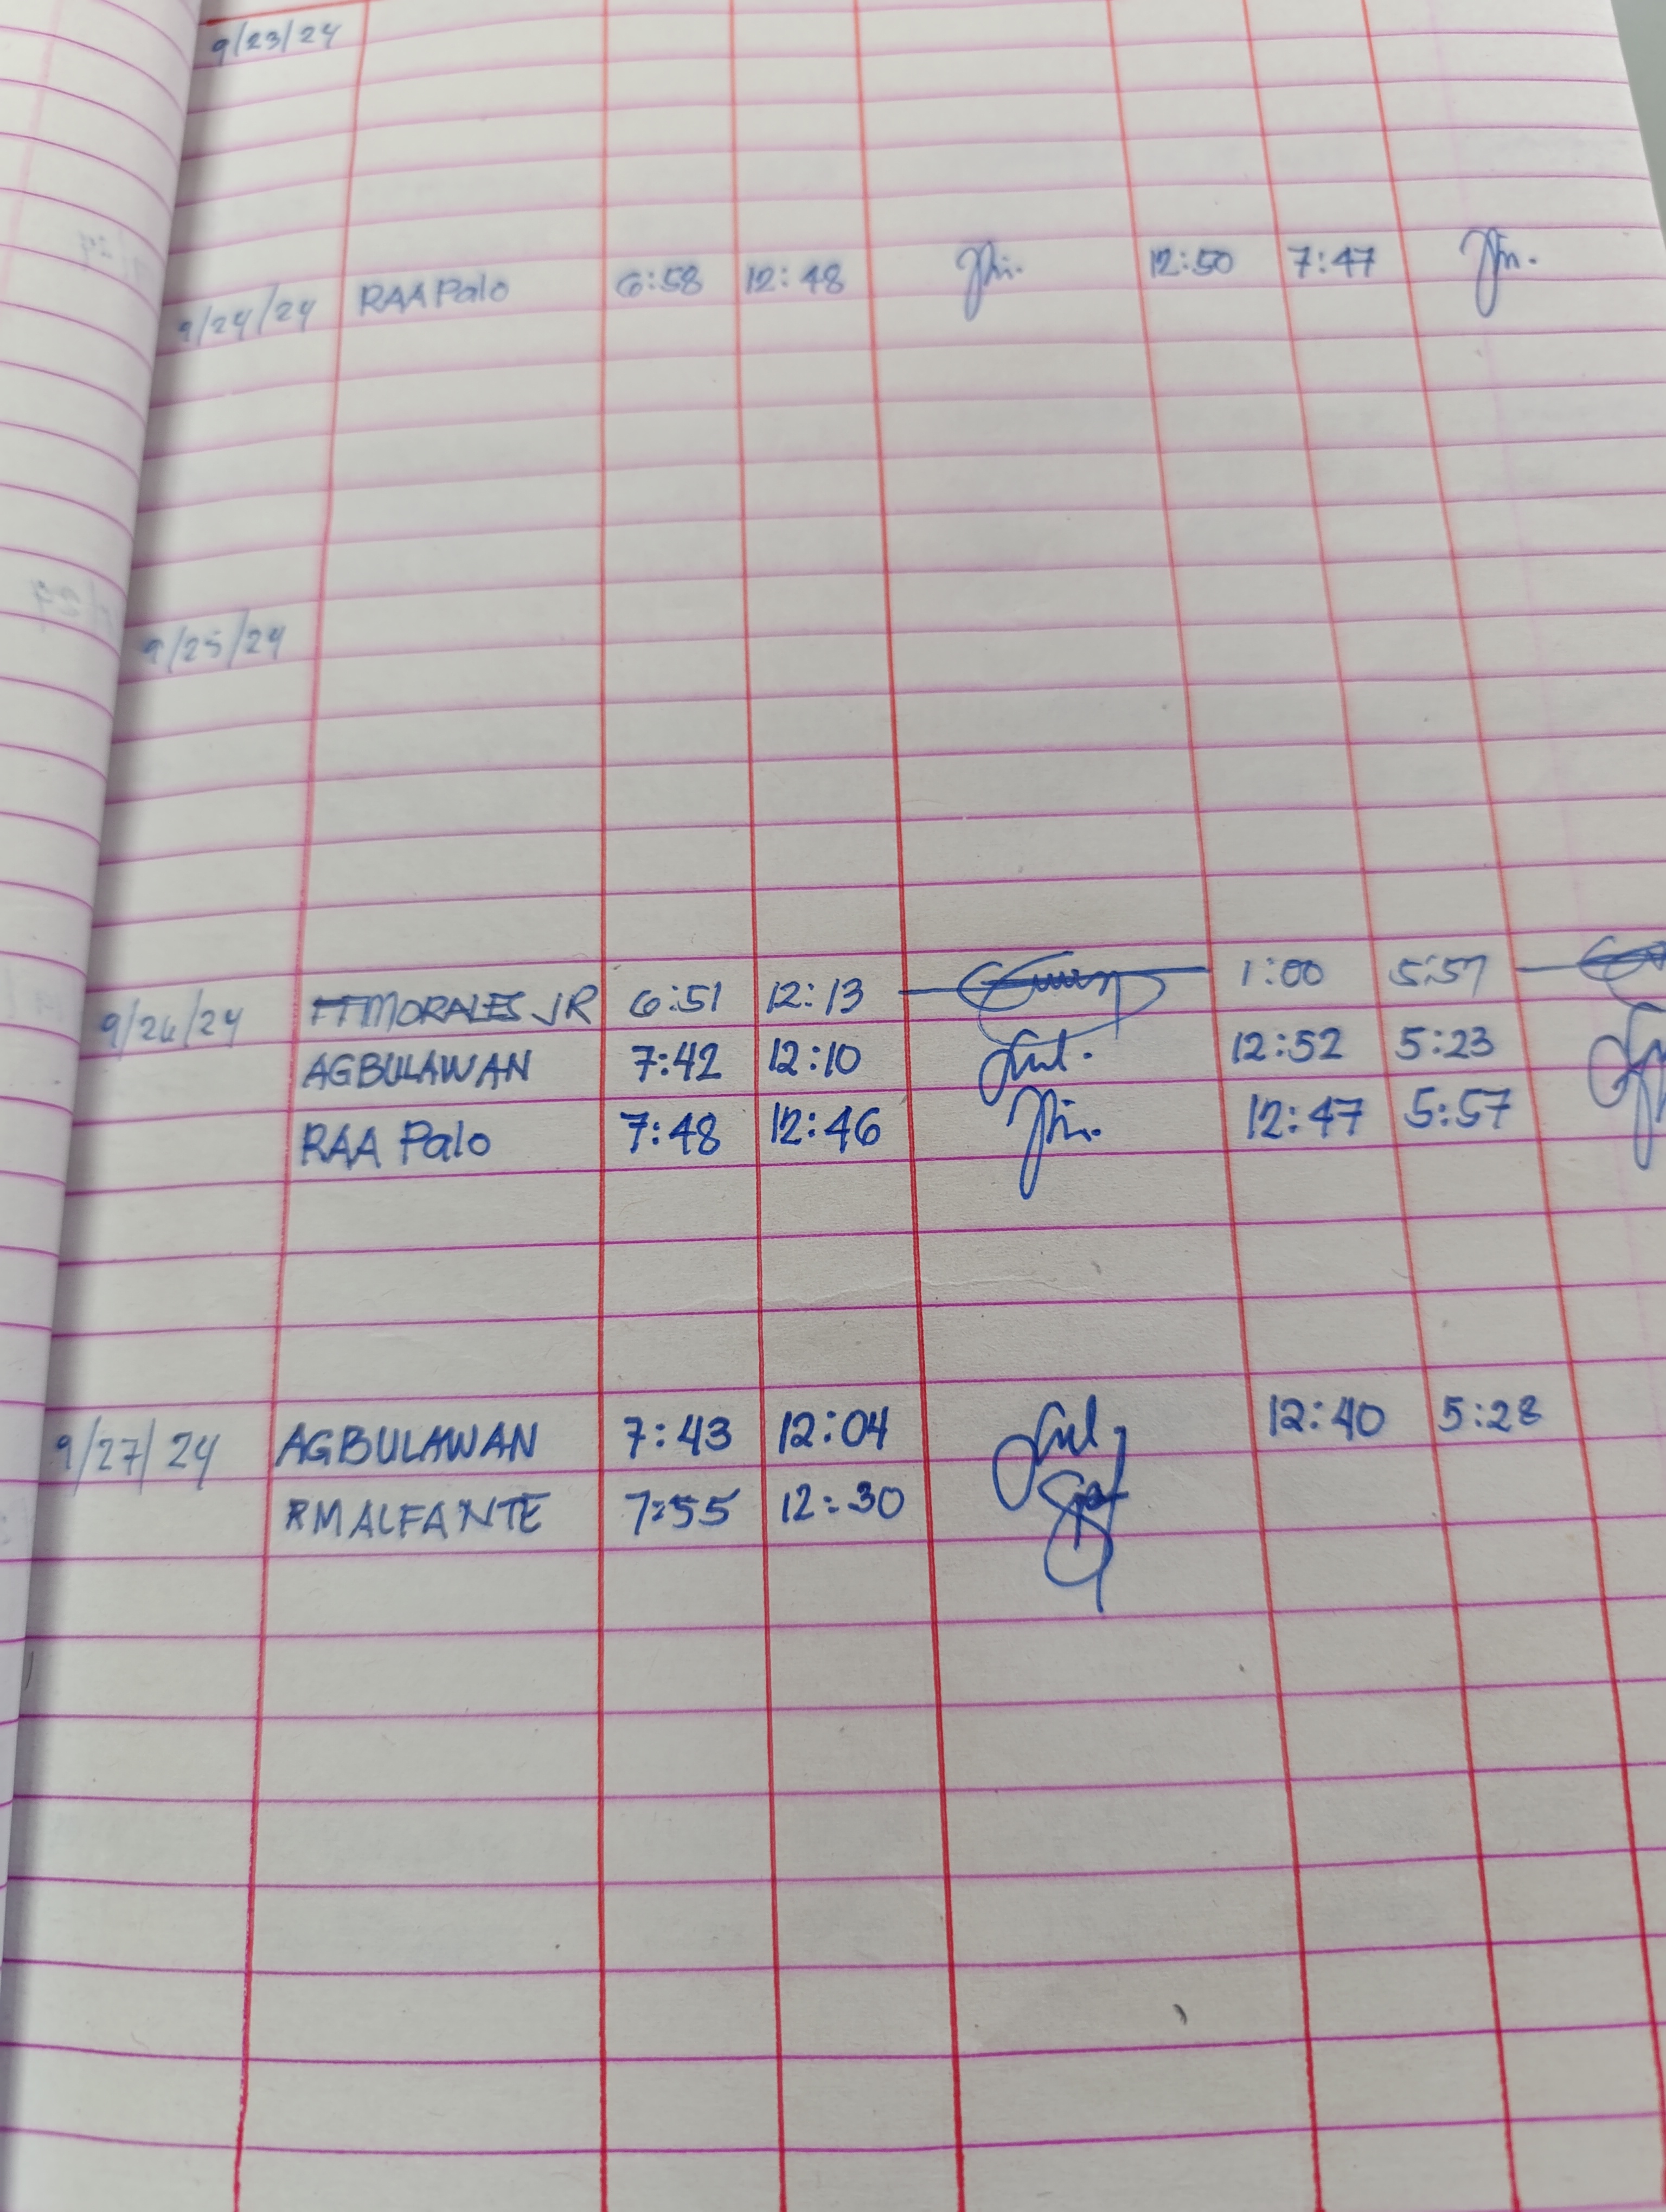 9/23/24
9/24/24 RAA Palo 6:58 12:48 12:50 7:47
9/25/24
9/26/24 FFMORALES JR 6:51 12:13 1:00 5:57
AGBULAWAN 7:42 12:10 12:52 5:23
RAA Palo 7:48 12:46 12:47 5:57
9/27/24 AGBULAWAN 7:43 12:04 12:40 5:28
RMALFANTE 7:55 12:30